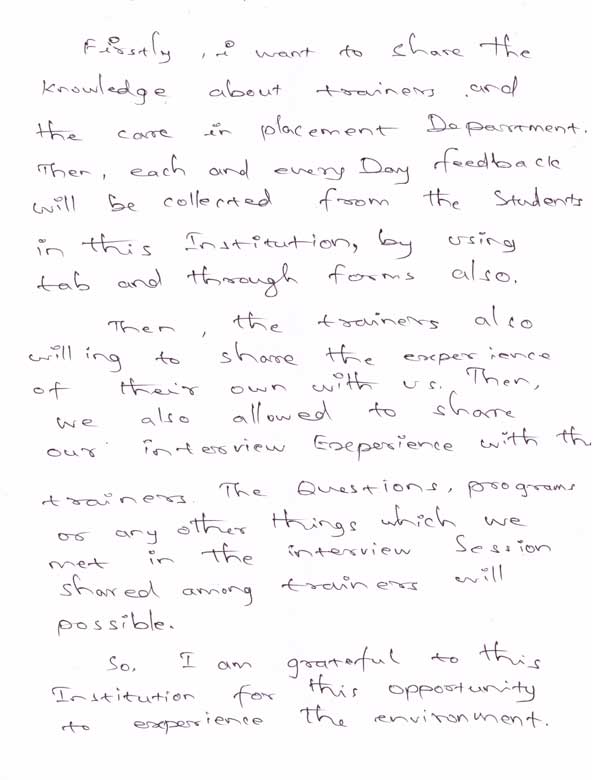 Firstly, i want to share the
knowledge about trainers and
the care in placement Department.
Then, each and every Day feedback
will be collected from the Students
in this Institution, by using
tab and through forms also.
Then, the trainers also
willing to share the experience
of their own with us. Then,
we also allowed to share
our interview Experience with th
trainers. The Questions, programs
or any other things which we
met in the interview Session
shared among trainers will
possible.
So, I am grateful to this
Institution for this opportunity
to experience the environment.